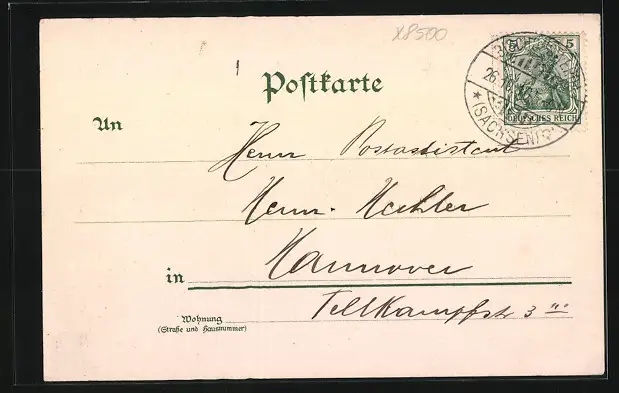 x8500
Postkarte
5 5
DEUTSCHES REICH
26.
* (SACHSEN)
An
Herrn Postassistent
Herm. Koehler
in Hannover
Wohnung
(Straße und Hausnummer)
Tellkampfstr 3 III